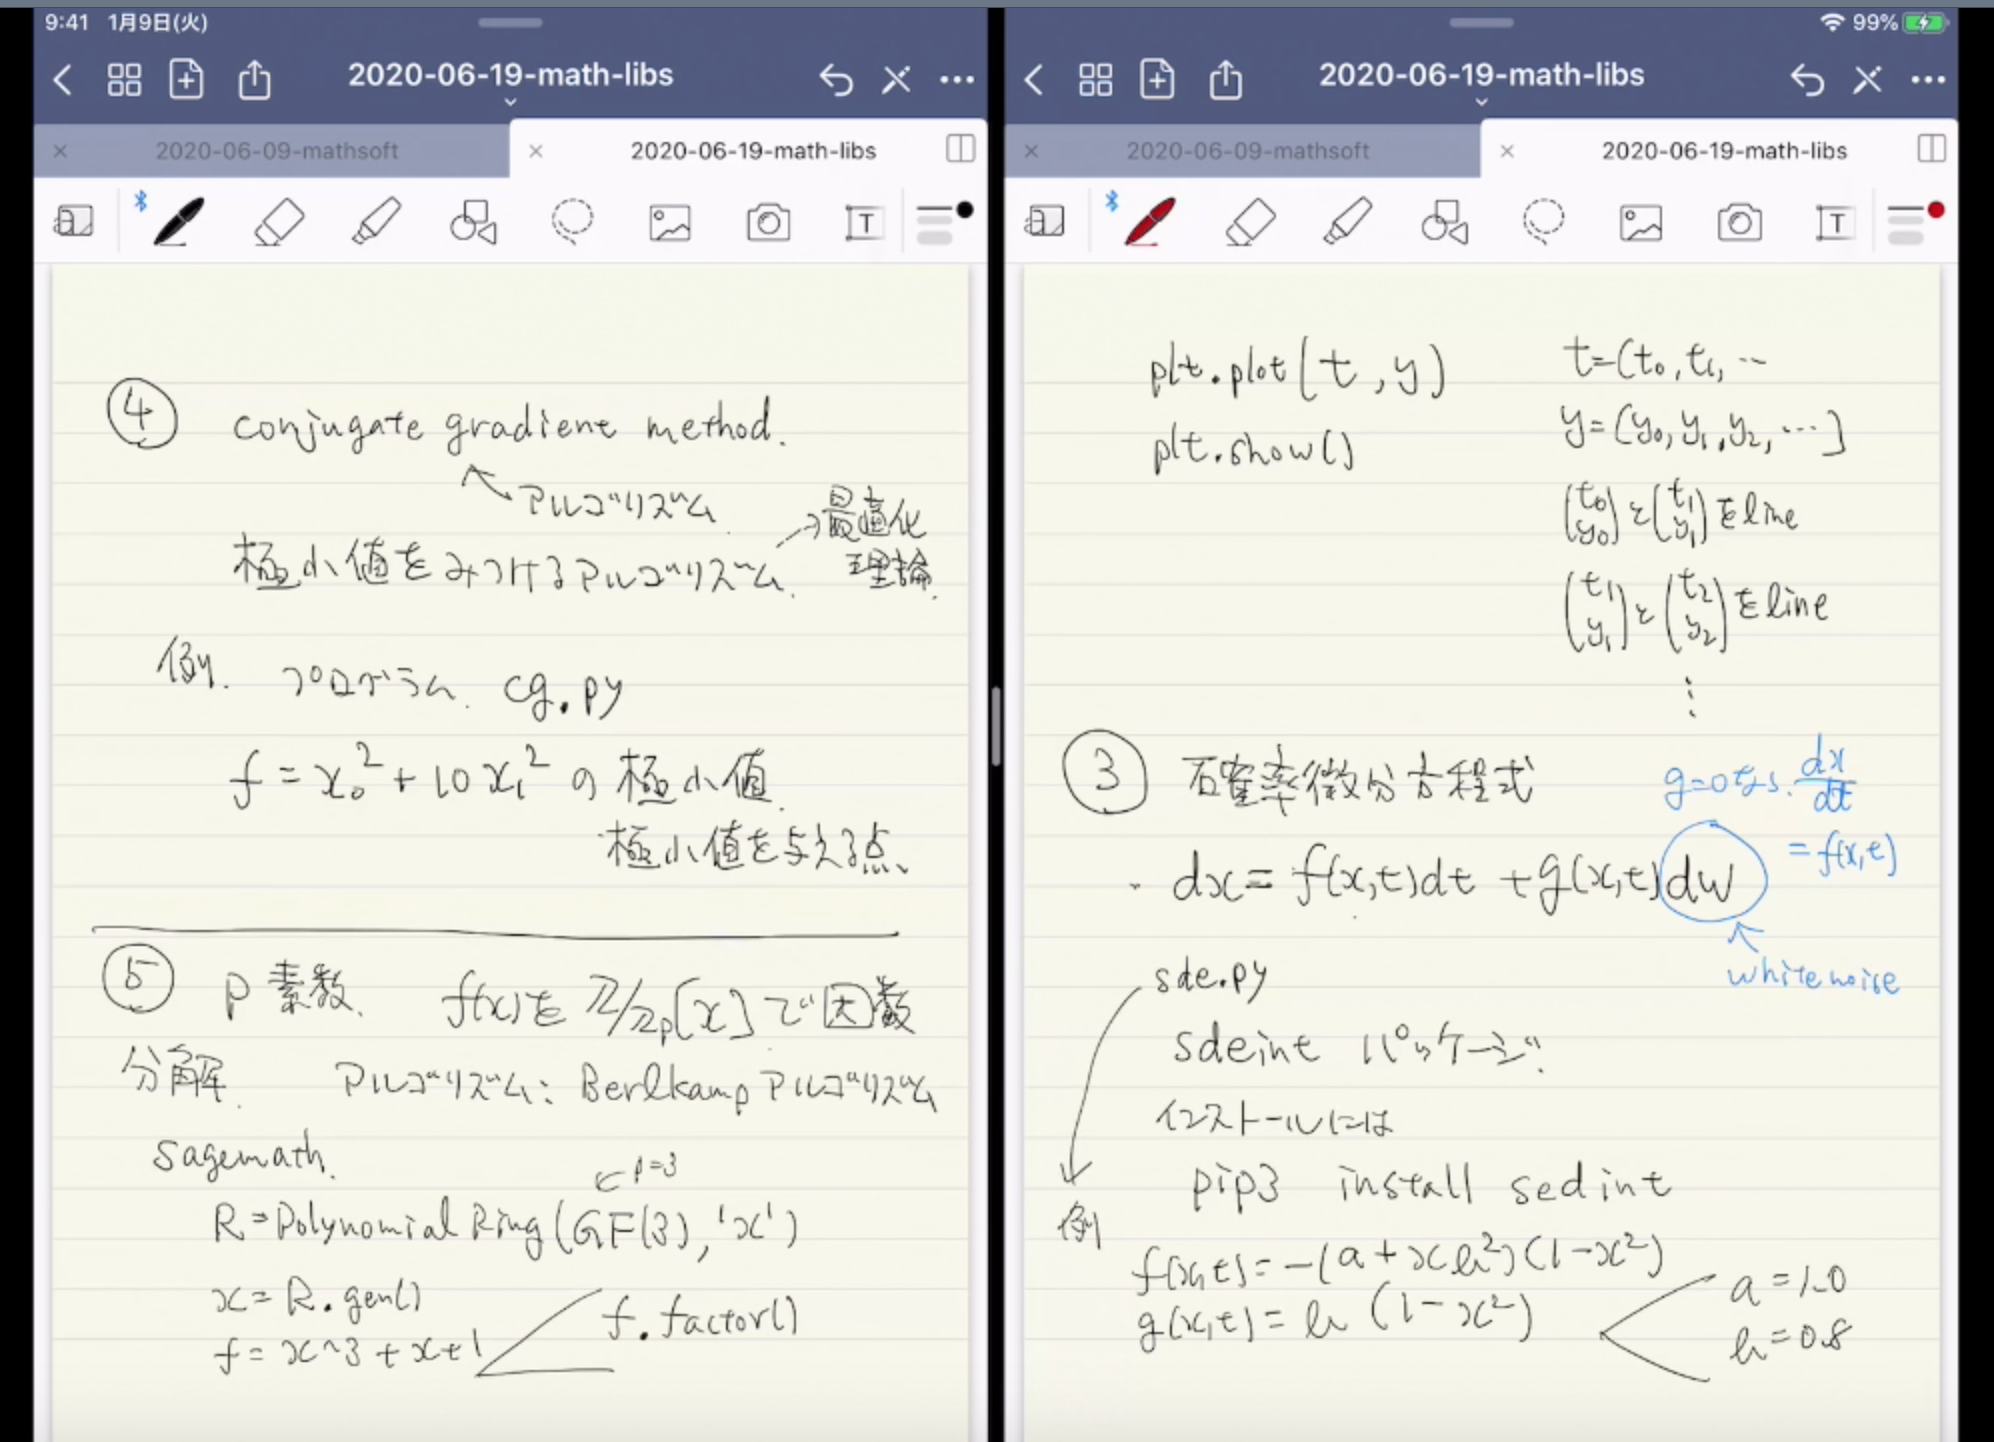 9:41 1月9日(火)
2020-06-19-math-libs
2020-06-09-mathsoft
2020-06-19-math-libs
T
④ conjugate gradient method.
アルゴリズム
極小値をみつけるアルゴリズム.
最適化
理論.
例. プログラム. cg.py
f = x₀² + 10x₁² の極小値.
極小値を与える点、
⑤ p 素数. f(x)を Z/Zp[x]で因数
分解. アルゴリズム: Berlkamp アルゴリズム
sagemath.
p=3
R=Polynomial Ring(GF(3),'x')
x=R.gen()
f=x^3+x+1
f.factor()
99%
2020-06-19-math-libs
2020-06-09-mathsoft
2020-06-19-math-libs
T
plt.plot(t,y)
plt.show()
t=(t₀,t₁,…
y=(y₀,y₁,y₂,…]
(t₀ y₀)と(t₁ y₁)をline
(t₁ y₁)と(t₂ y₂)をline
⋮
③ 確率微分方程式
g=0なら. dx/dt
=f(x,t)
dx=f(x,t)dt+g(x,t)dw
white noise
sde.py
sdeint パッケージ.
インストールには
pip3 install sedint
例
f(x,t)=-(a+xb²)(1-x²)
g(x,t)=b(1-x²)
a=1.0
b=0.8